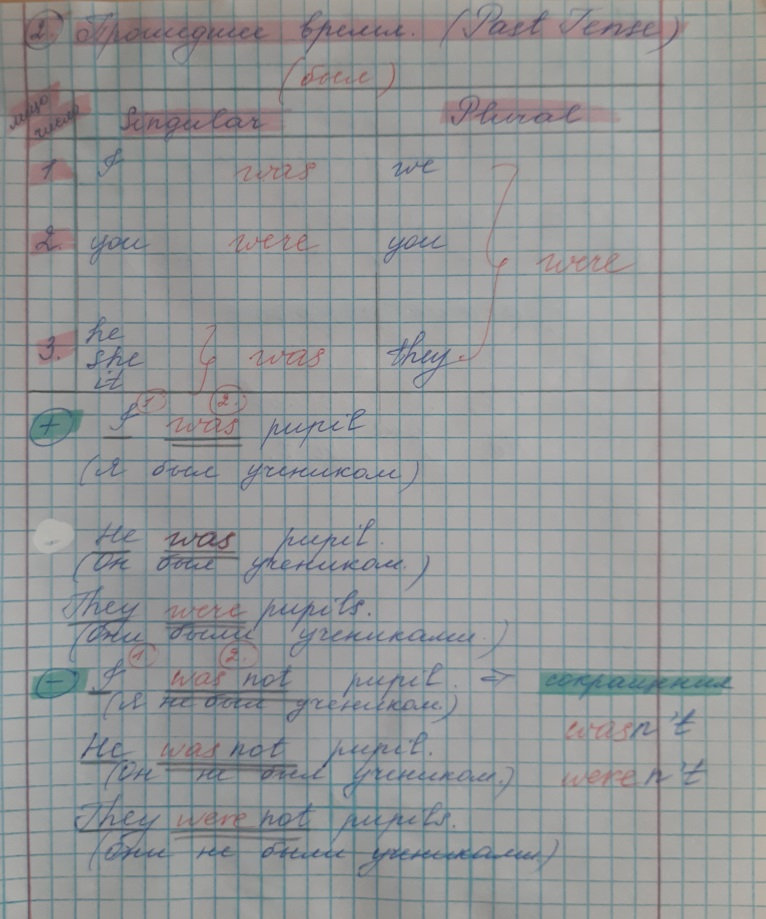 2. Прошедшее время. (Past Tense)
(был)
лицо число Singular Plural
1 I was we
2. you were you were
he
3. she was they
it
1. 2.
+ I was pupil
(Я был учеником)
He was pupil.
(Он был учеником.)
They were pupils.
(Они были учениками.)
1 2.
- I was not pupil. ⇒ сокращения
(Я не был учеником.)
wasn't
He was not pupil.
(Он не был учеником.) weren't
They were not pupils.
(Они не были учениками.)